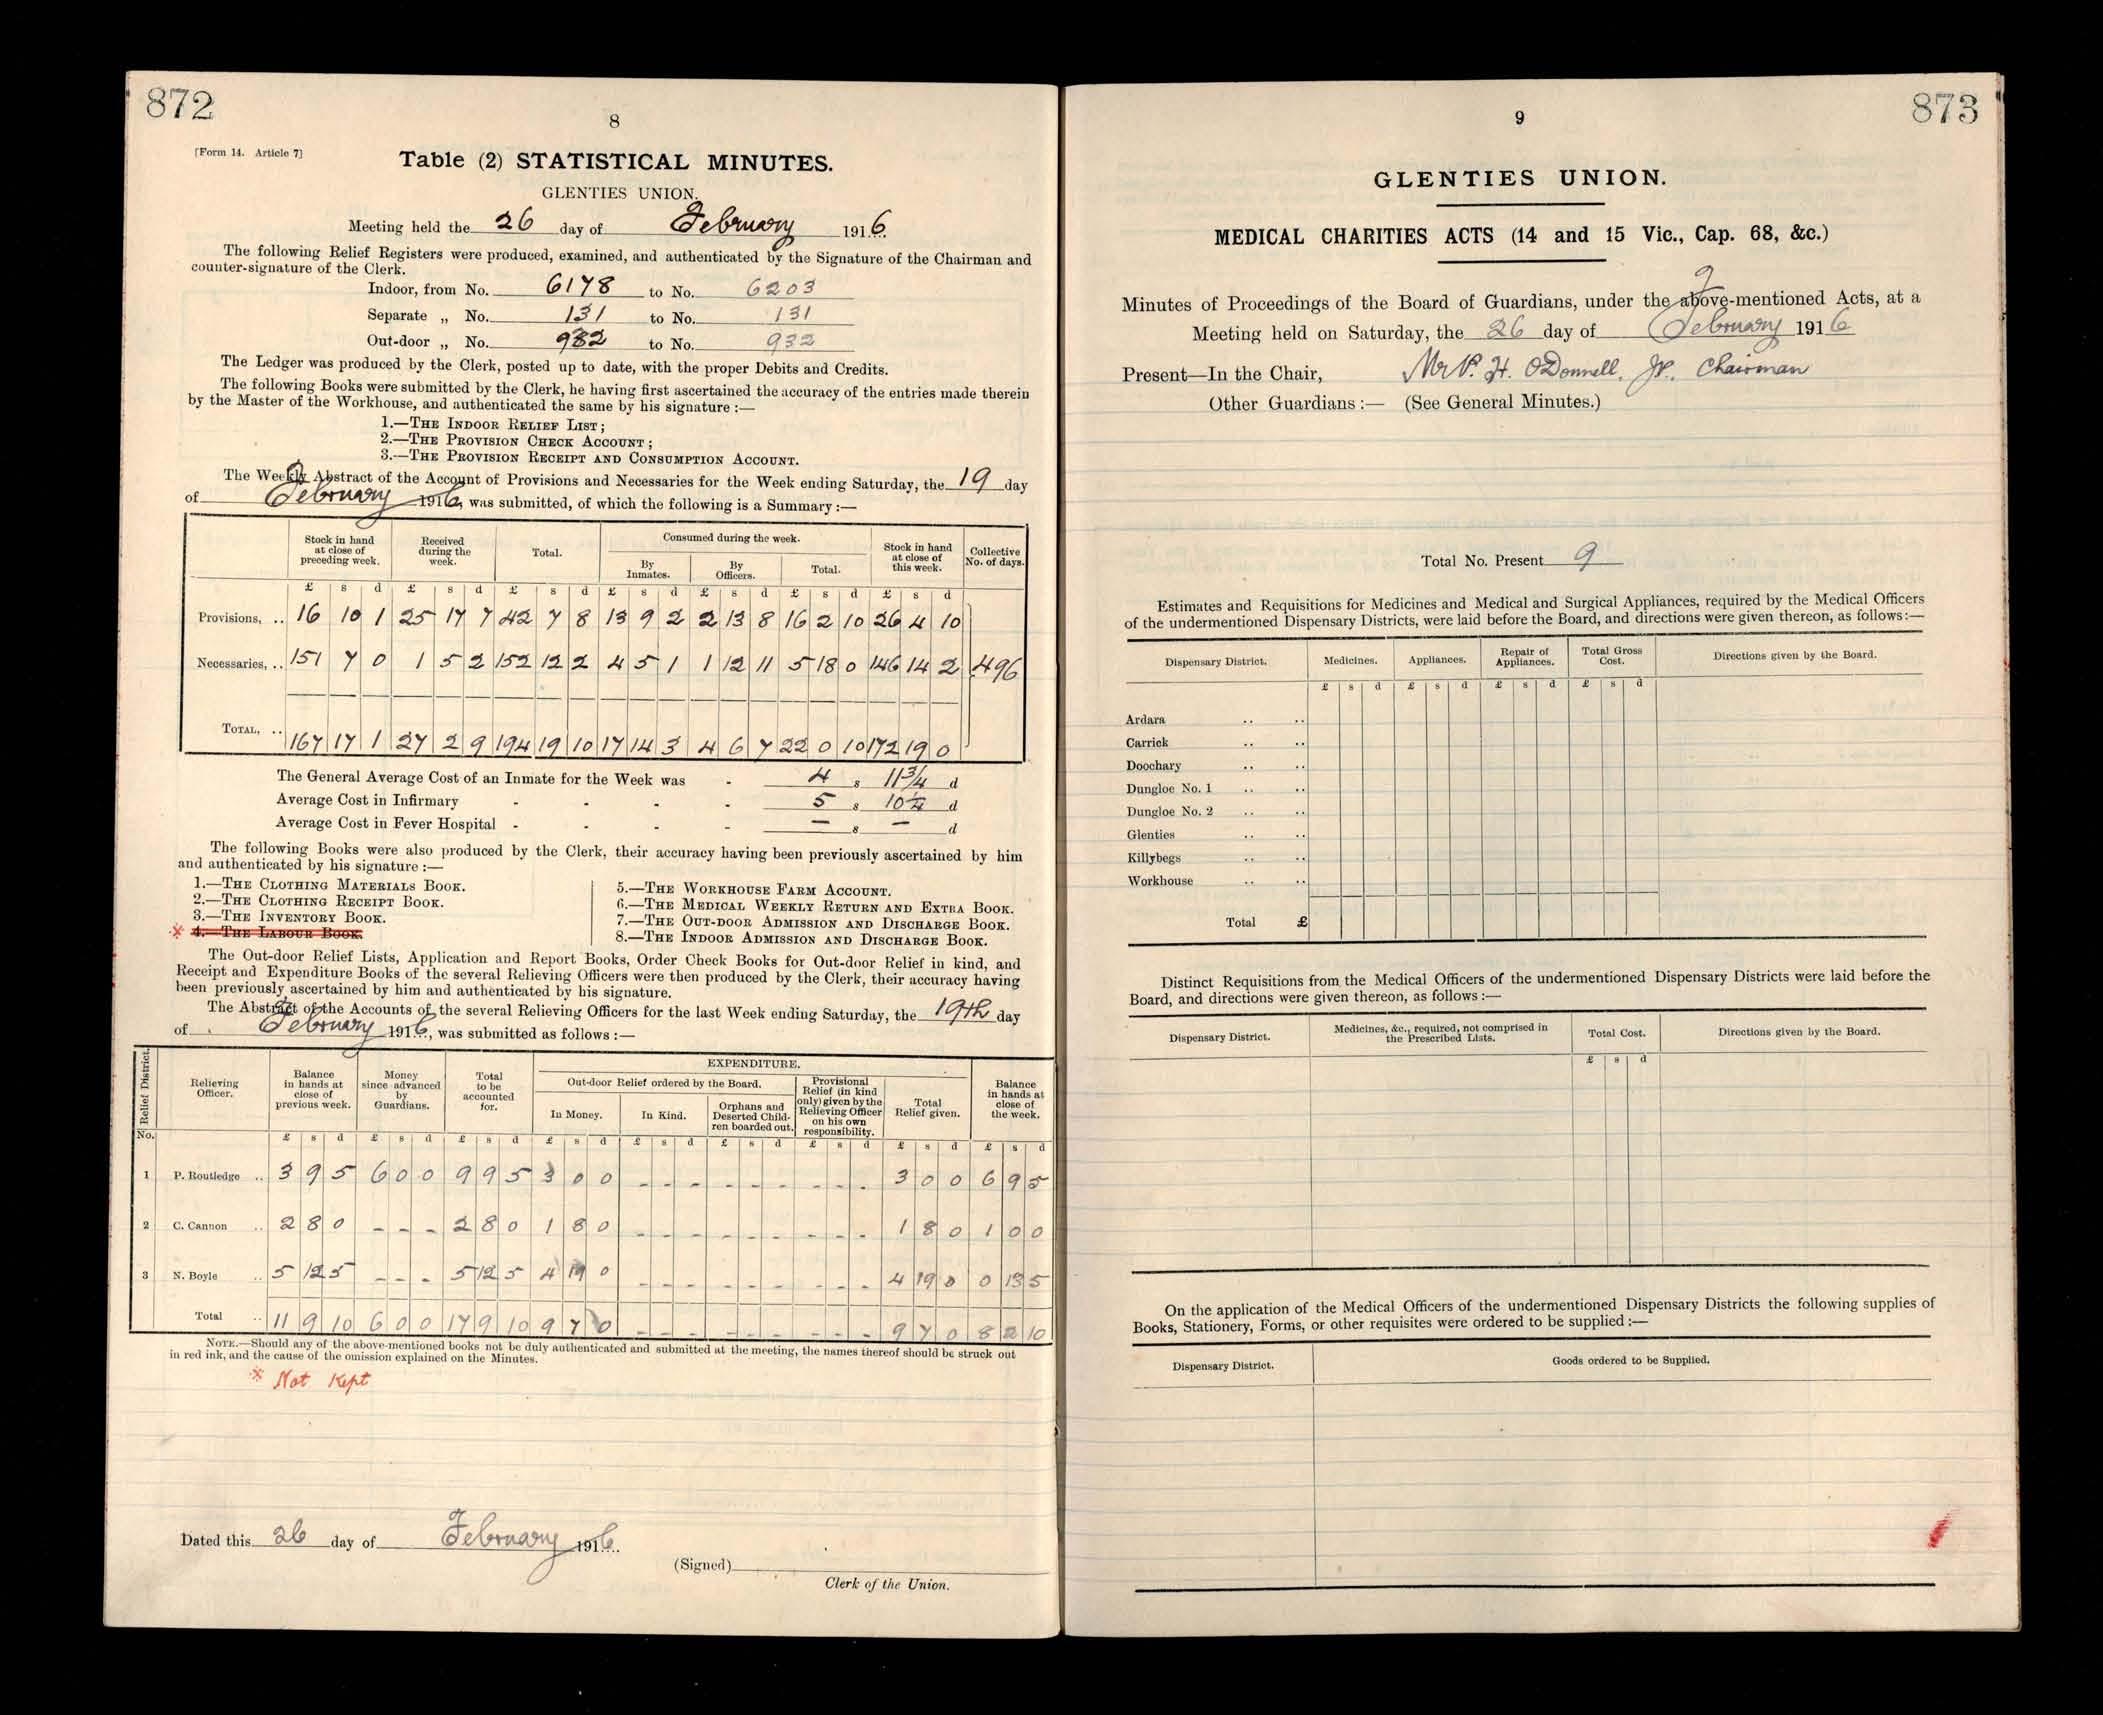 872
8
[Form 14. Article 7]
Table (2) STATISTICAL MINUTES.
GLENTIES UNION.
Meeting held the 26 day of February 1916
The following Relief Registers were produced, examined, and authenticated by the Signature of the Chairman and
counter-signature of the Clerk.
Indoor, from No. 6178 to No. 6203
Separate „ No. 131 to No. 131
Out-door „ No. 932 to No. 932
The Ledger was produced by the Clerk, posted up to date, with the proper Debits and Credits.
The following Books were submitted by the Clerk, he having first ascertained the accuracy of the entries made therein
by the Master of the Workhouse, and authenticated the same by his signature :—
1.—THE INDOOR RELIEF LIST ;
2.—THE PROVISION CHECK ACCOUNT ;
3.—THE PROVISION RECEIPT AND CONSUMPTION ACCOUNT.
The Weekly Abstract of the Account of Provisions and Necessaries for the Week ending Saturday, the 19 day
of February 1916, was submitted, of which the following is a Summary :—
Stock in hand at close of preceding week. Received during the week. Total. Consumed during the week. By Inmates. By Officers. Total. Stock in hand at close of this week. Collective No. of days.
£ s d £ s d £ s d £ s d £ s d £ s d £ s d
Provisions, .. 16 10 1 25 17 7 42 7 8 13 9 2 2 13 8 16 2 10 26 4 10
Necessaries, .. 151 7 0 1 5 2 152 12 2 4 5 1 1 12 11 5 18 0 146 14 2 496
TOTAL, .. 167 17 1 27 2 9 194 19 10 17 14 3 4 6 7 22 0 10 172 19 0
The General Average Cost of an Inmate for the Week was - 4 s 11 3/4 d
Average Cost in Infirmary - - - - 5 s 10 1/4 d
Average Cost in Fever Hospital - - - - — s — d
The following Books were also produced by the Clerk, their accuracy having been previously ascertained by him
and authenticated by his signature :—
1.—THE CLOTHING MATERIALS BOOK.
2.—THE CLOTHING RECEIPT BOOK.
3.—THE INVENTORY BOOK.
× 4.—THE LABOUR BOOK.
5.—THE WORKHOUSE FARM ACCOUNT.
6.—THE MEDICAL WEEKLY RETURN AND EXTRA BOOK.
7.—THE OUT-DOOR ADMISSION AND DISCHARGE BOOK.
8.—THE INDOOR ADMISSION AND DISCHARGE BOOK.
The Out-door Relief Lists, Application and Report Books, Order Check Books for Out-door Relief in kind, and
Receipt and Expenditure Books of the several Relieving Officers were then produced by the Clerk, their accuracy having
been previously ascertained by him and authenticated by his signature.
The Abstract of the Accounts of the several Relieving Officers for the last Week ending Saturday, the 19th day
of February 1916, was submitted as follows :—
Relief District. Relieving Officer. Balance in hands at close of previous week. Money since advanced by Guardians. Total to be accounted for. EXPENDITURE. Out-door Relief ordered by the Board. In Money. In Kind. Orphans and Deserted Children boarded out. Provisional Relief (in kind only) given by the Relieving Officer on his own responsibility. Total Relief given. Balance in hands at close of the week.
No. £ s d £ s d £ s d £ s d £ s d £ s d £ s d £ s d £ s d
1 P. Routledge .. 3 9 5 6 0 0 9 9 5 3 0 0 - - - - - - - - - 3 0 0 6 9 5
2 C. Cannon .. 2 8 0 - - - 2 8 0 1 8 0 - - - - - - - - - 1 8 0 1 0 0
3 N. Boyle .. 5 12 5 - - - 5 12 5 4 19 0 - - - - - - - - - 4 19 0 0 13 5
Total .. 11 9 10 6 0 0 17 9 10 9 7 0 - - - - - - - - - 9 7 0 8 2 10
NOTE.—Should any of the above-mentioned books not be duly authenticated and submitted at the meeting, the names thereof should be struck out
in red ink, and the cause of the omission explained on the Minutes.
× Not Kept
Dated this 26 day of February 1916
(Signed)
Clerk of the Union.
873
9
GLENTIES UNION.
MEDICAL CHARITIES ACTS (14 and 15 Vic., Cap. 68, &c.)
Minutes of Proceedings of the Board of Guardians, under the above-mentioned Acts, at a
Meeting held on Saturday, the 26 day of February 1916
Present—In the Chair, Mr P. H. O'Donnell, J.P. Chairman
Other Guardians :— (See General Minutes.)
Total No. Present 9
Estimates and Requisitions for Medicines and Medical and Surgical Appliances, required by the Medical Officers
of the undermentioned Dispensary Districts, were laid before the Board, and directions were given thereon, as follows :—
Dispensary District. Medicines. Appliances. Repair of Appliances. Total Gross Cost. Directions given by the Board.
£ s d £ s d £ s d £ s d
Ardara .. ..
Carrick .. ..
Doochary .. ..
Dungloe No. 1 .. ..
Dungloe No. 2 .. ..
Glenties .. ..
Killybegs .. ..
Workhouse .. ..
Total £
Distinct Requisitions from the Medical Officers of the undermentioned Dispensary Districts were laid before the
Board, and directions were given thereon, as follows :—
Dispensary District. Medicines, &c., required, not comprised in the Prescribed Lists. Total Cost. Directions given by the Board.
£ s d
On the application of the Medical Officers of the undermentioned Dispensary Districts the following supplies of
Books, Stationery, Forms, or other requisites were ordered to be supplied :—
Dispensary District. Goods ordered to be Supplied.